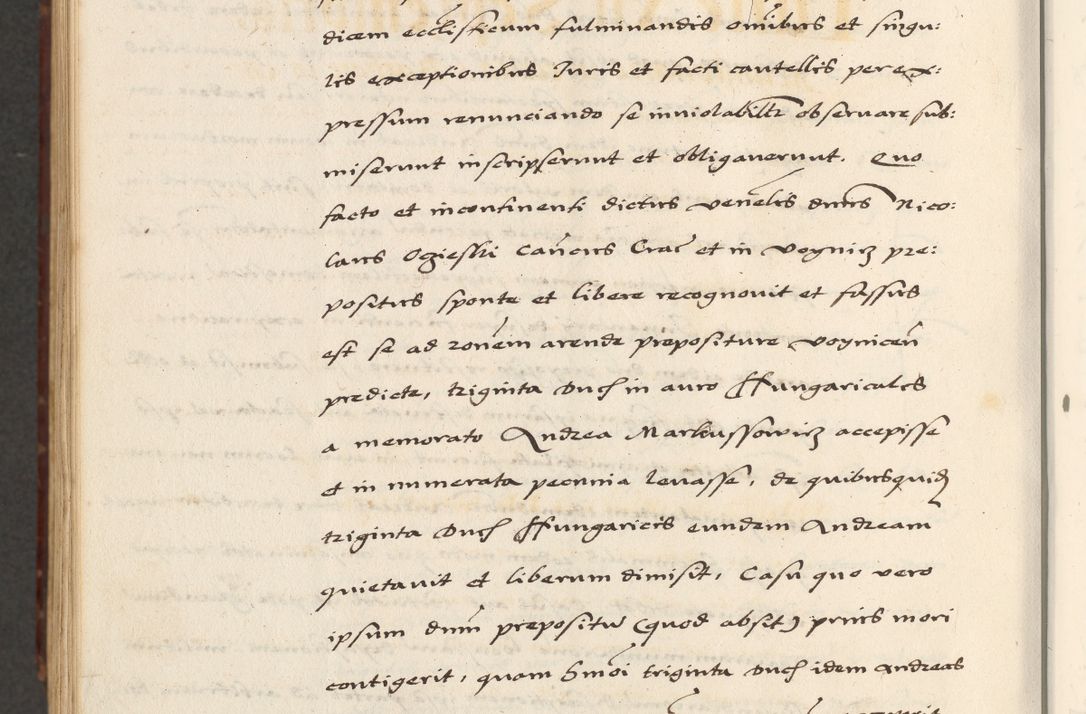 dicem eccl̄isticum fulminandis om̄ibus et singu:
lis exceptionibus Iuris et facti cautellis per ex:
pressum renunciando se inviolabilitr̄ observare sub:
miserunt inscripserunt et obligaverunt. Quo
facto et incontinenti dictus venēlis dn̄us Nico:
laus Ogieski Can̄cus Crac̄ et in Voynicz pre:
positus sponte et libere recognovit et fassus
est se ad ronēm arende prepositure Voynicen̄
predicte, triginta Duc̄ in auro Hungaricales
a memorato Andrea Markussowicz accepisse
et in numerata pecunia levasse, de quibusquid
triginta Duc̄ Hungaricis eundem Andream
quietavit et liberum dimisit, Casu quo vero
ipsum dnm̄ prepositū (quod absit) prius mori
contigerit, quam hm̄oi triginta Duc̄ idem Andreas